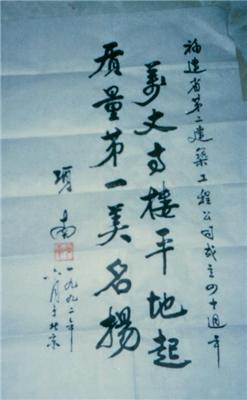 福建省第二建築工程公司成立四十週年
萬丈高樓平地起
质量第一美名揚
項南
一九九二年
六月于北京